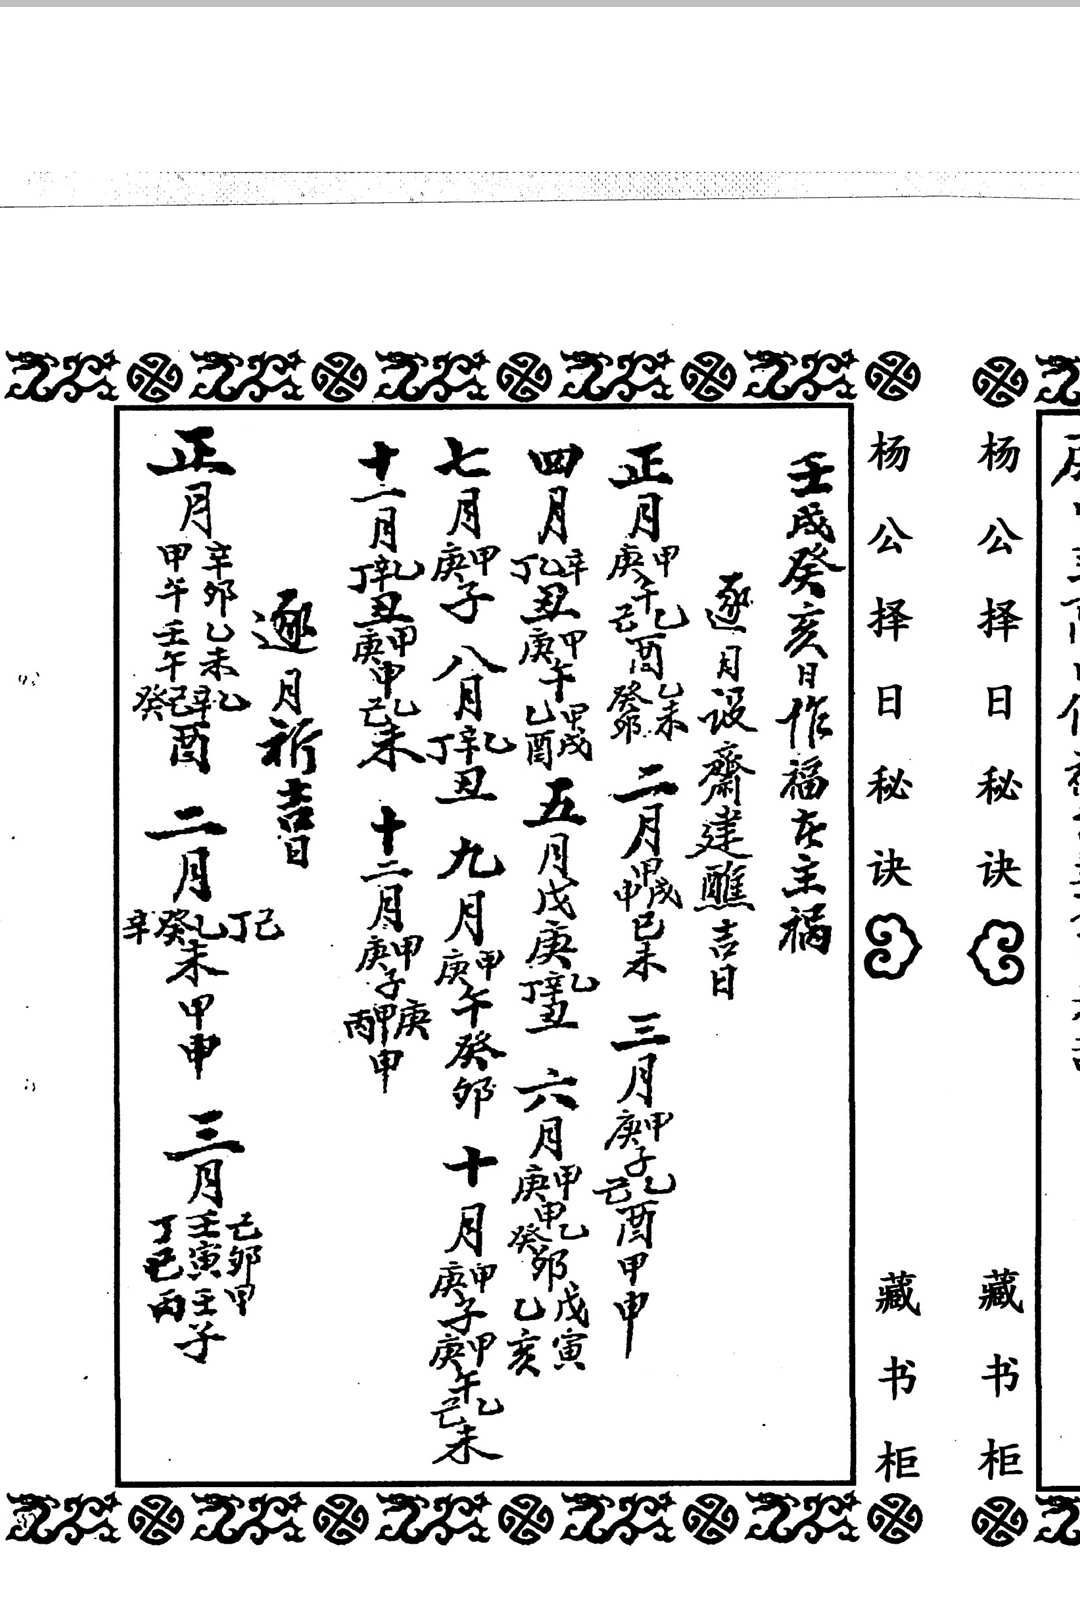 杨公择日秘诀
藏书柜
杨公择日秘诀
藏书柜
壬戌癸亥日作福在主祸
逐月设齋建醮吉日
正月甲庚午乙己酉乙未癸卯 二月甲戌甲申己未 三月甲庚子乙己酉甲申
四月辛乙丁丑甲庚午甲戌乙酉 五月戊庚乙辛丁丑 六月甲庚甲乙癸卯戊寅乙亥
七月甲庚子 八月乙辛丁丑 九月甲庚午癸卯 十月甲庚子甲庚午乙己未
十一月乙辛丁丑甲庚申乙己未 十二月甲庚子庚甲丙申
逐月祈吉日
正月辛卯乙未甲午壬午乙辛己癸酉 二月己丁乙癸辛未甲申 三月己卯甲壬寅壬子丁巳丙